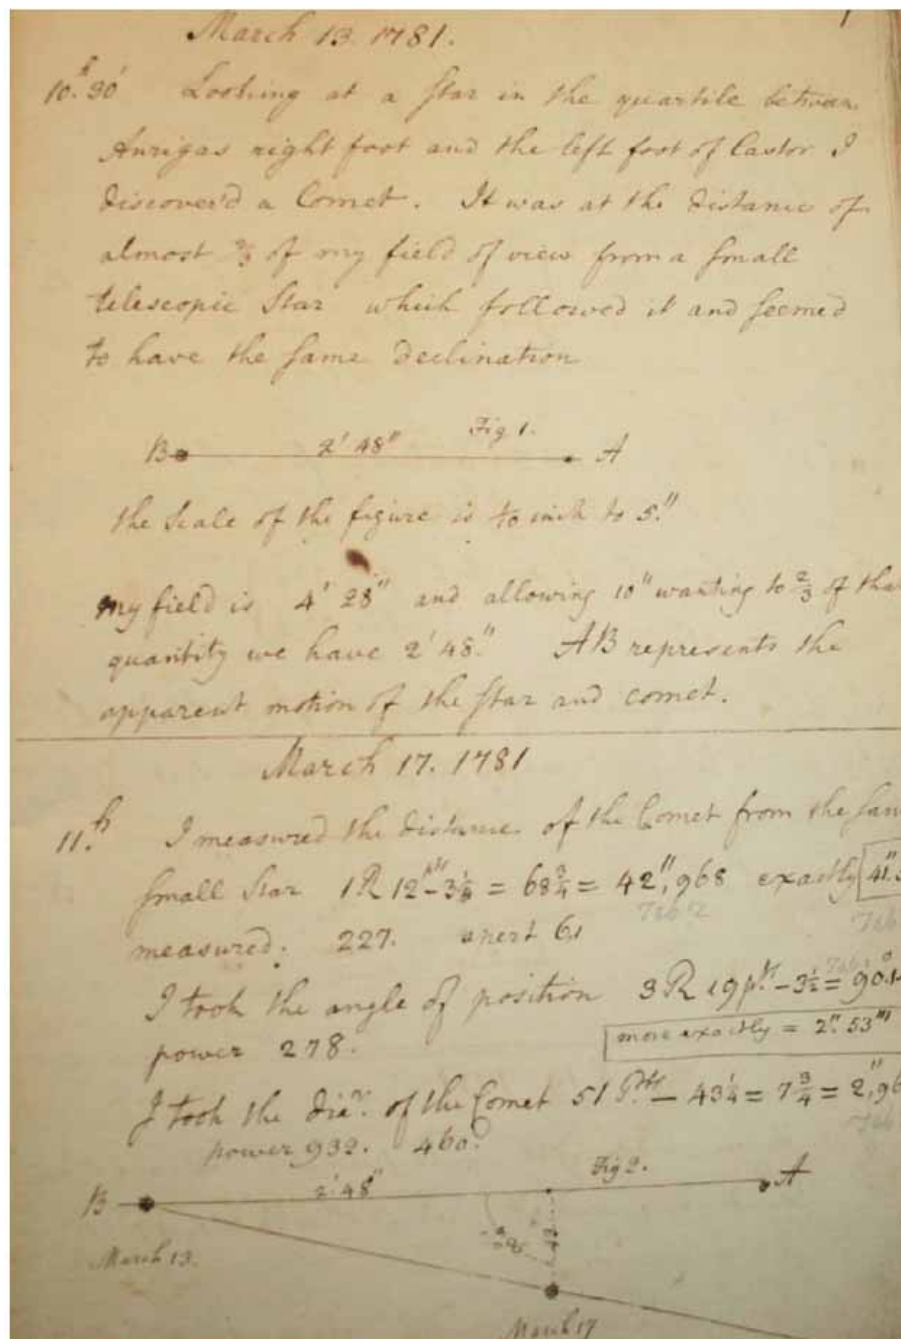 1
March 13. 1781.
10.h 30' Looking at a star in the quartile between
Aurigas right foot and the left foot of Castor I
discover'd a Comet. It was at the distance of
almost 2/3 of my field of view from a small
telescopic star which followed it and seemed
to have the same declination
Fig 1.
B 2' 48" A
the scale of the figure is to inch to 5."
my field is 4' 28" and allowing 10" wanting to 2/3 of that
quantity we have 2' 48." AB represents the
apparent motion of the star and comet.
March 17. 1781
11.h I measured the distance of the Comet from the
small star 1 R 12 pts - 3 1/4 = 68 3/4 = 42",968 exactly 41"
measured. 227. 
I took the angle of position 3 R 19 pts - 3 1/2 = 90.
power 278. more exactly = 2". 53'''
I took the diar. of the Comet 51 Pts - 43 1/4 = 7 3/4 = 2",96
power 932. 460.
Fig 2.
B 2' 48" A
March 13.
March 17